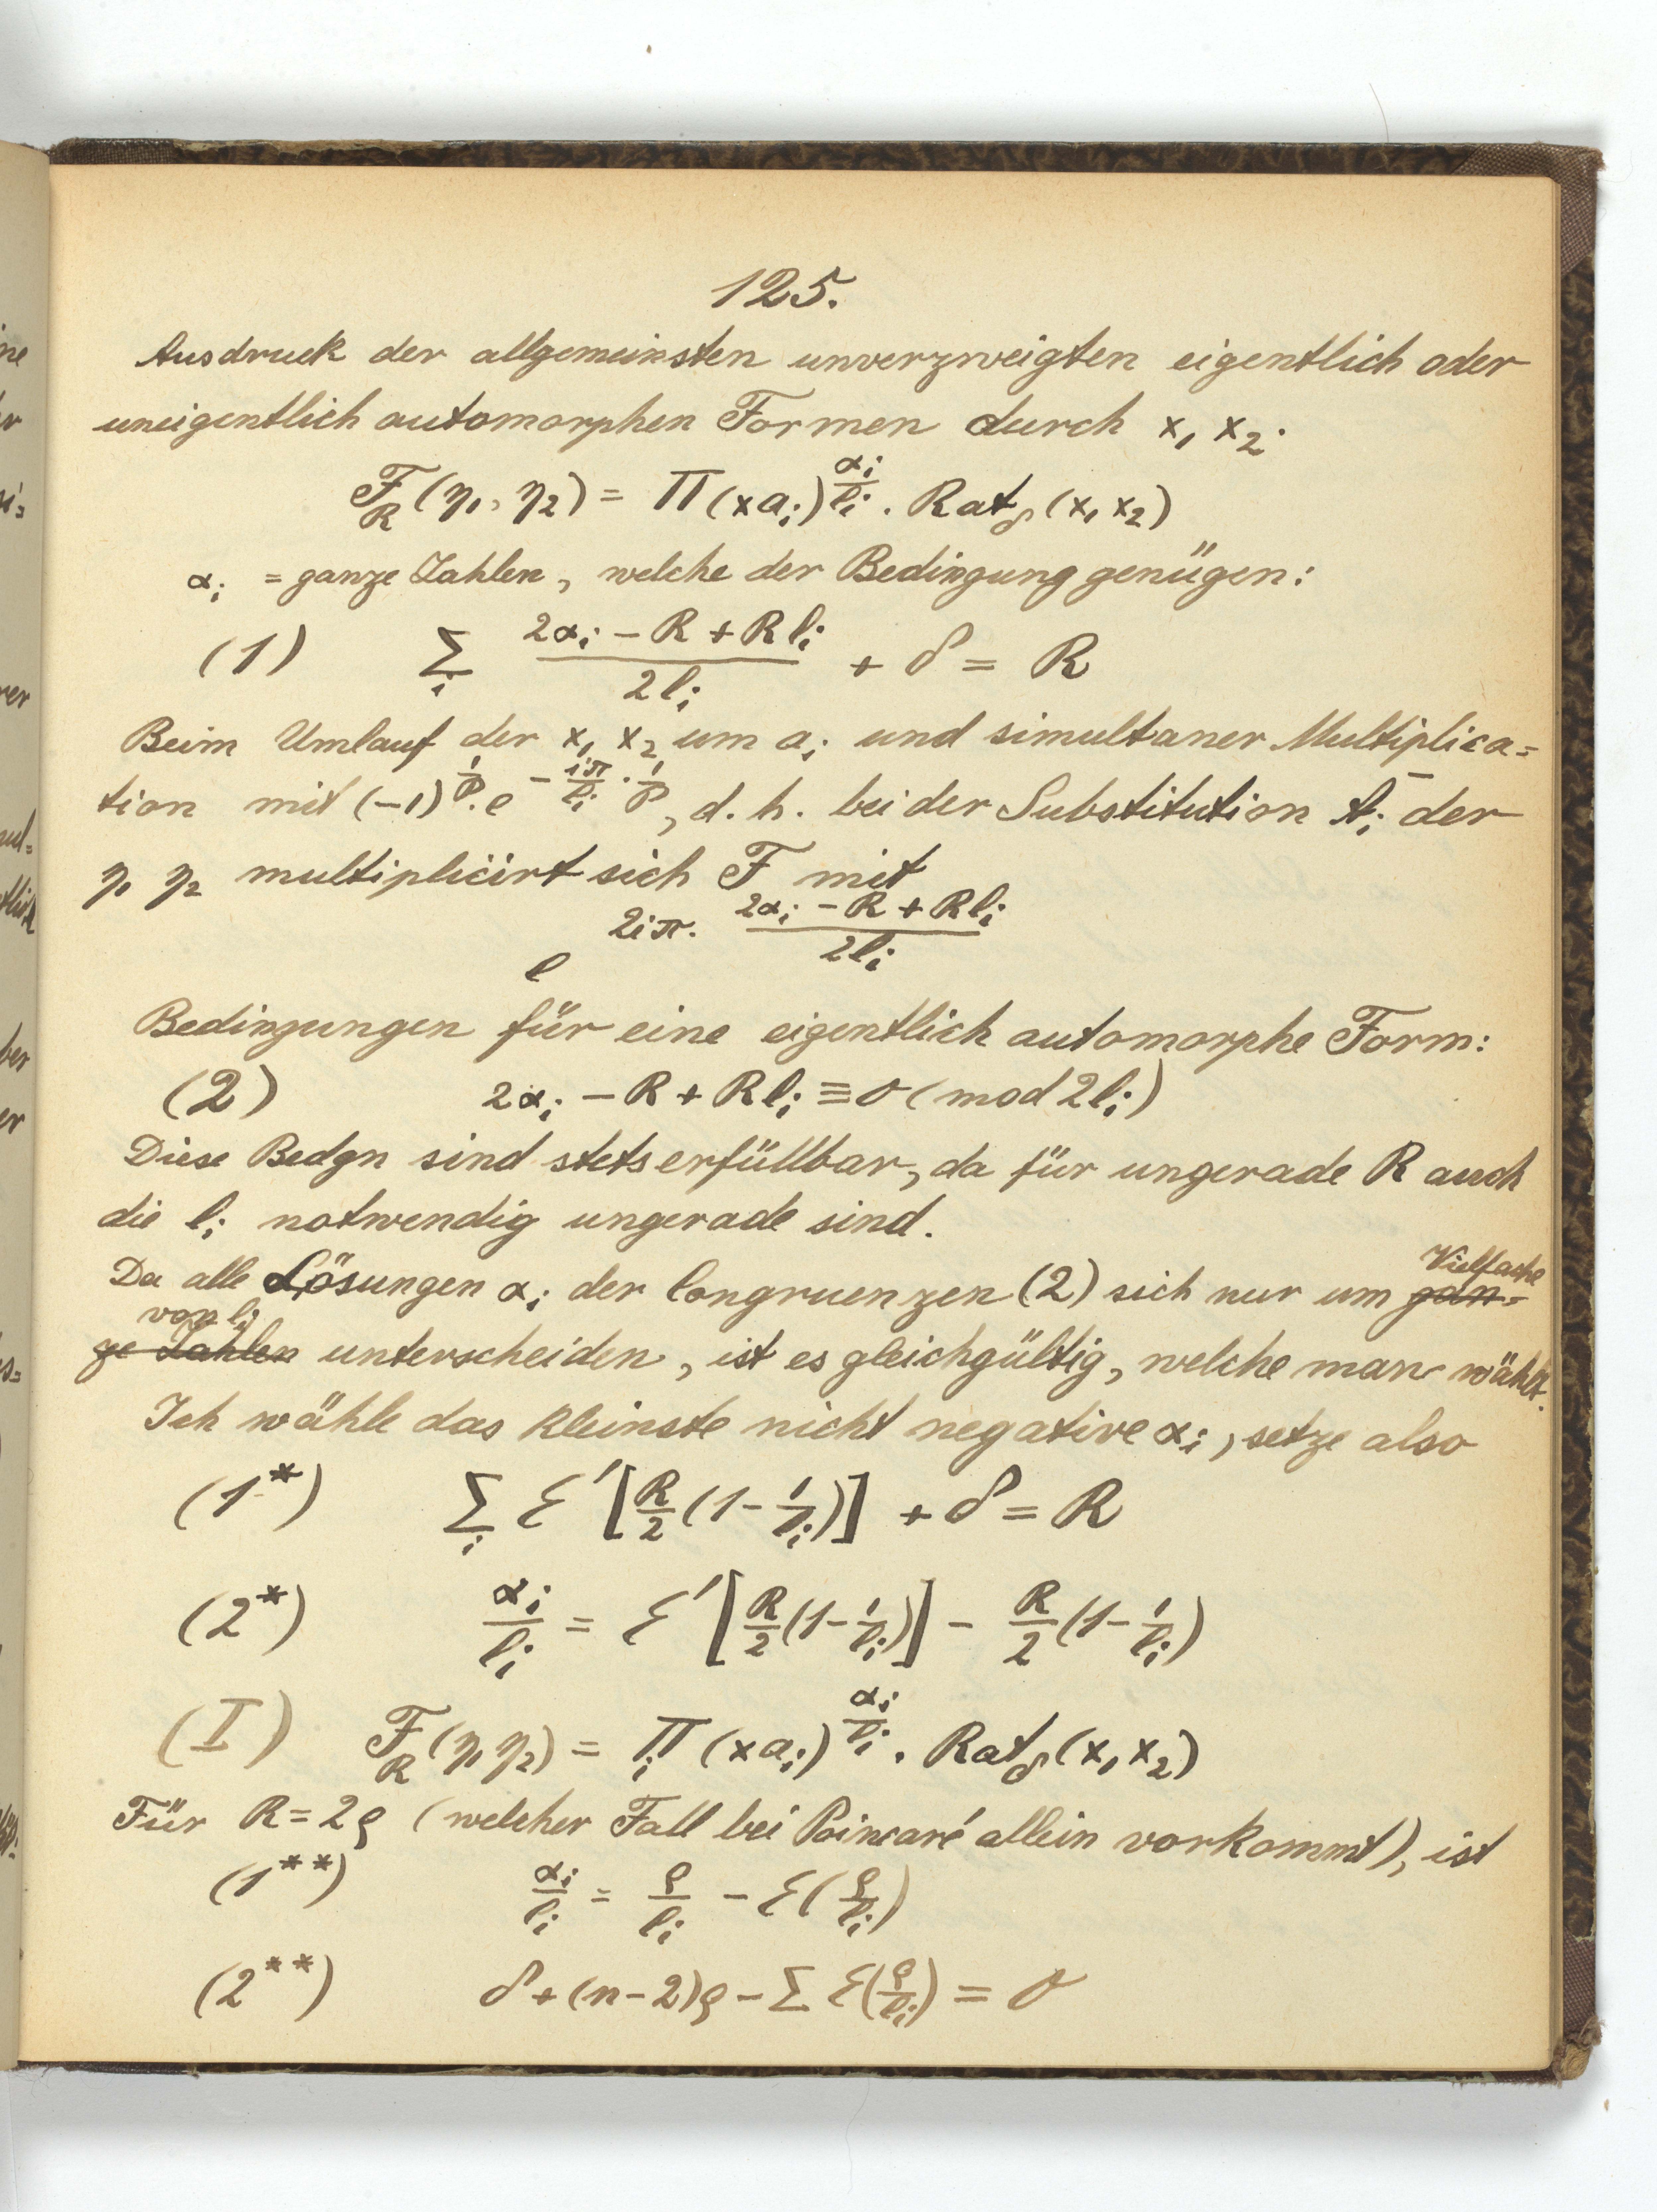 125.
Ausdruck der allgemeinsten unverzweigten eigentlich oder
uneigentlich automorphen Formen durch x₁ x₂.
F_R (η₁, η₂) = Π (x a_i)^{α_i/l_i} . Rat_δ (x₁ x₂)
α_i = ganze Zahlen, welche der Bedingung genügen:
(1) Σ_i (2α_i − R + R l_i)/(2 l_i) + δ = R
Beim Umlauf der x₁ x₂ um a_i und simultaner Multiplica=
tion mit (−1)^{1/p} . e^{− iπ/l_i · 1/p}, d. h. bei der Substitution t̄_i der
η₁ η₂ multiplicirt sich F mit
e^{2iπ. (2α_i − R + R l_i)/(2 l_i)}
Bedingungen für eine eigentlich automorphe Form:
(2) 2α_i − R + R l_i ≡ 0 (mod 2 l_i)
Diese Bedgn sind stets erfüllbar, da für ungerade R auch
die l_i notwendig ungerade sind.
Da alle Lösungen α_i der Congruenzen (2) sich nur um gan= Vielfache
ge Zahlen von l_i unterscheiden, ist es gleichgültig, welche man wählt.
Ich wähle das kleinste nicht negative α_i, setze also
(1*) Σ_i ℰ′[R/2 (1 − 1/l_i)] + δ = R
(2*) α_i/l_i = ℰ′[R/2 (1 − 1/l_i)] − R/2 (1 − 1/l_i)
(I) F_R (η₁ η₂) = Π_i (x a_i)^{α_i/l_i} . Rat_δ (x₁ x₂)
Für R = 2ϱ (welcher Fall bei Poincaré allein vorkommt), ist
(1**) α_i/l_i = ϱ/l_i − ℰ(ϱ/l_i)
(2**) δ + (n−2)ϱ − Σ ℰ(ϱ/l_i) = 0